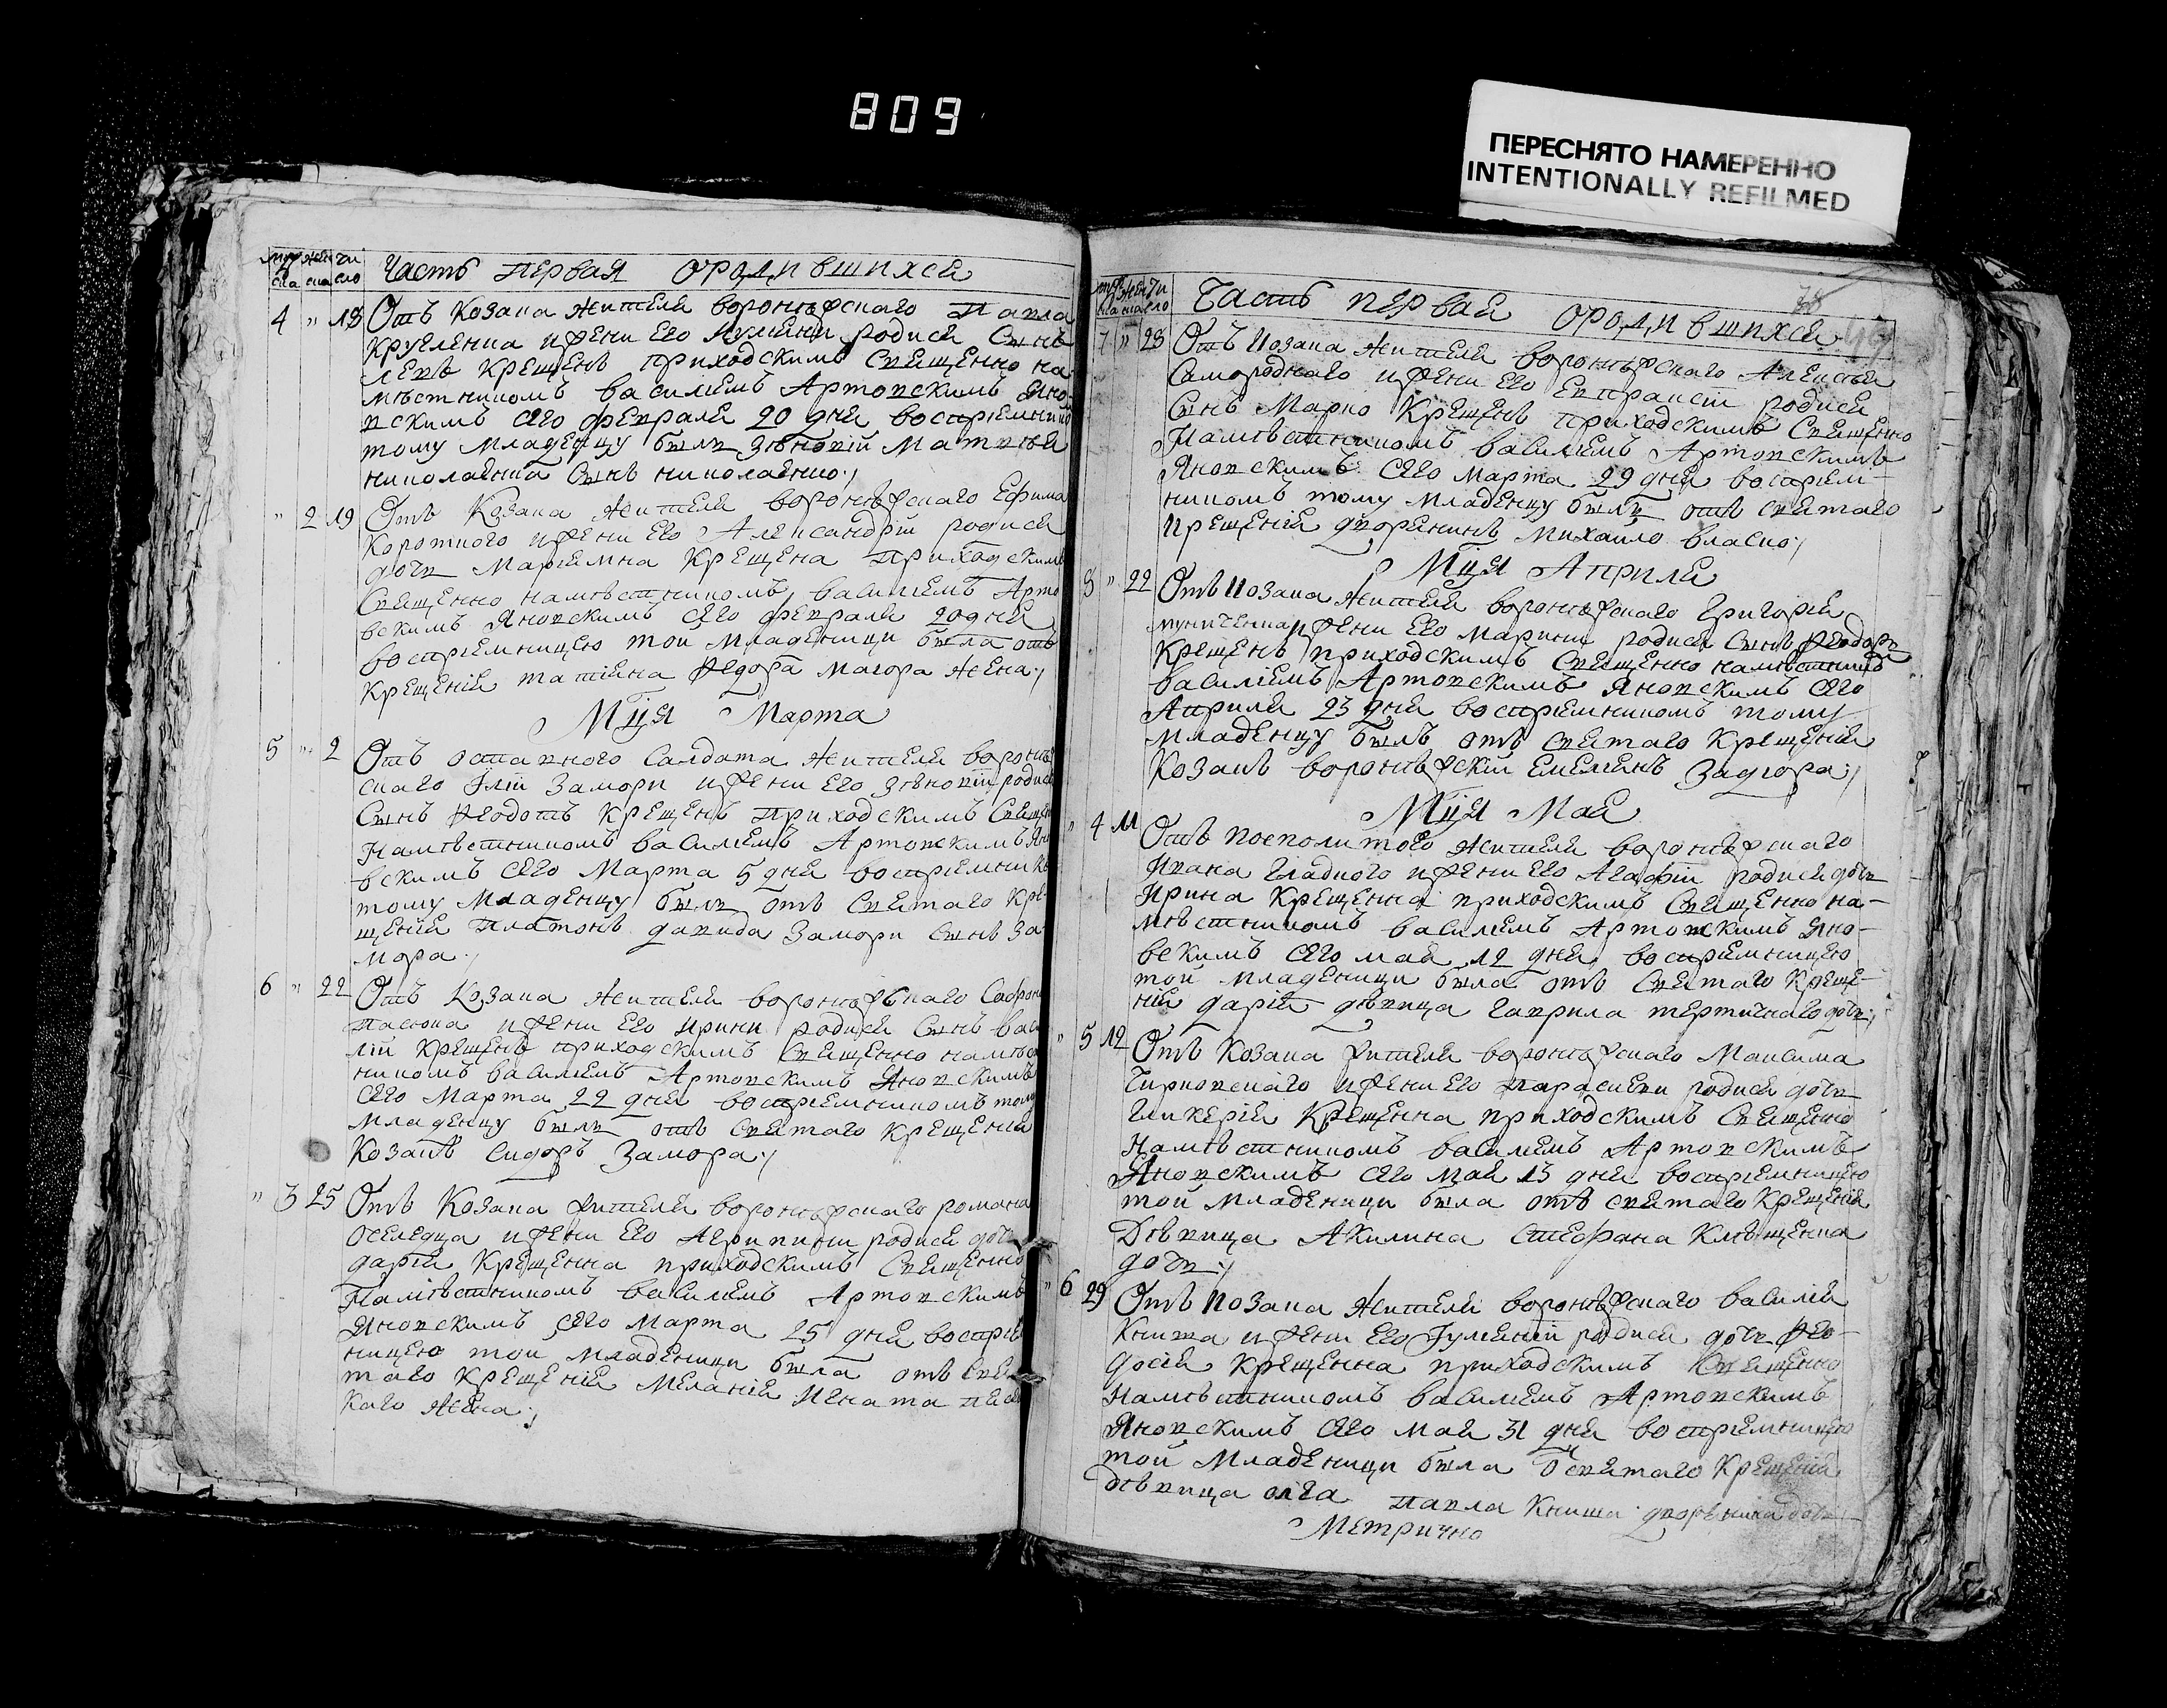 809
ПЕРЕСНЯТО НАМЕРЕННО
INTENTIONALLY REFILMED
Часть первая о родившихся
4 " 18 Отъ Козака жителя воронѣжского Павла
и жени его родися Сынъ
крещенъ приходскимъ Священно на
мѣстникомъ василіемъ Артовскимъ Яно
вскимъ сего февраля 20 дня
тому младенцу былъ
Сынъ
" 2 19 Отъ Козака жителя воронѣжского Ефима
Короткого и жени его Александри родися
дочь Маріамна Крещена приходскимъ
Священно намѣстникомъ василіемъ Арто
вскимъ Яновскимъ сего февраля 20 дня
воспріемницею той младеници была отъ
Крещенія татіяна Федора магора жена
Мця Марта
5 " 2 Отъ оставного Салдата жителя воронѣж
ского Иліи Замори и жени его Зѣновіи родися
Сынъ Феодотъ Крещенъ приходскимъ Священно
Намѣстникомъ василіемъ Артовскимъ Яно
вскимъ сего Марта 5 дня воспріемникъ
тому младенцу былъ отъ Святаго Кре
щенія Платонъ давида Замори Сынъ За
мора
6 " 22 Отъ Козака жителя воронѣжского
и жени его Ирини родися Сынъ васи
лій крещенъ приходскимъ Священно намѣст
никомъ василіемъ Артовскимъ Яновскимъ
сего Марта 22 дня воспріемникомъ тому
младенцу былъ отъ Святаго Крещенія
Козакъ Сидоръ Замора
" 3 25 Отъ Козака жителя воронѣжского романа
оселедца и жени его Агрипини родися дочь
дарія Крещенна приходскимъ Священно
Намѣстникомъ василіемъ Артовскимъ
Яновскимъ сего Марта 25 дня воспріем
ницею той младеници была отъ Свя
таго Крещенія Меланія
жена
Часть первая о родившихся
7 " 28 Отъ Козака жителя воронѣжского Алексѣя
Самородного и жени его Евпраксіи родися
Сынъ Марко Крещенъ приходскимъ Священно
Намѣстникомъ василіемъ Артовскимъ
Яновскимъ сего Марта 29 дня воспріем-
никомъ тому младенцу былъ отъ Святаго
Крещенія дворянинъ Михайло власко
Мця Априля
8 " 22 Отъ Козака жителя воронѣжского Григорія
и жени его Марини родися Сынъ Феодоръ
Крещенъ приходскимъ Священно намѣстникомъ
василіемъ Артовскимъ Яновскимъ сего
Априля 23 дня воспріемникомъ тому
младенцу былъ отъ Святаго Крещенія
Козакъ воронѣжскій Емеліянъ Задгора
Мця Мая
" 4 11 Отъ посполитого жителя воронѣжского
Ивана Гладкого и жени его Агафіи родися дочь
Ирина Крещенна приходскимъ Священно на-
мѣстникомъ василіемъ Артовскимъ Яно-
вскимъ сего мая 12 дня воспріемницею
той младеници была отъ Святаго Креще-
нія дарія дѣвица Гаврила тертичного дочь
" 5 12 Отъ Козака жителя воронѣжского Максима
Чирковского и жени его Параскеви родися дочь
Гликерія Крещенна приходскимъ Священно
Намѣстникомъ василіемъ Артовскимъ
Яновскимъ сего мая 13 дня воспріемницею
той младеници была отъ святаго Крещенія
Дѣвица Акилина Стефана Клѣщенка
дочь
" 6 29 Отъ Козака жителя воронѣжского василія
Книша и жени его Іуліяніи родися дочь Фео-
досія крещенна приходскимъ Священно
Намѣстникомъ василіемъ Артовскимъ
Яновскимъ сего мая 31 дня воспріемницею
той младеници была святаго Крещенія
дѣвица олга павла Книша дочь
Метрично